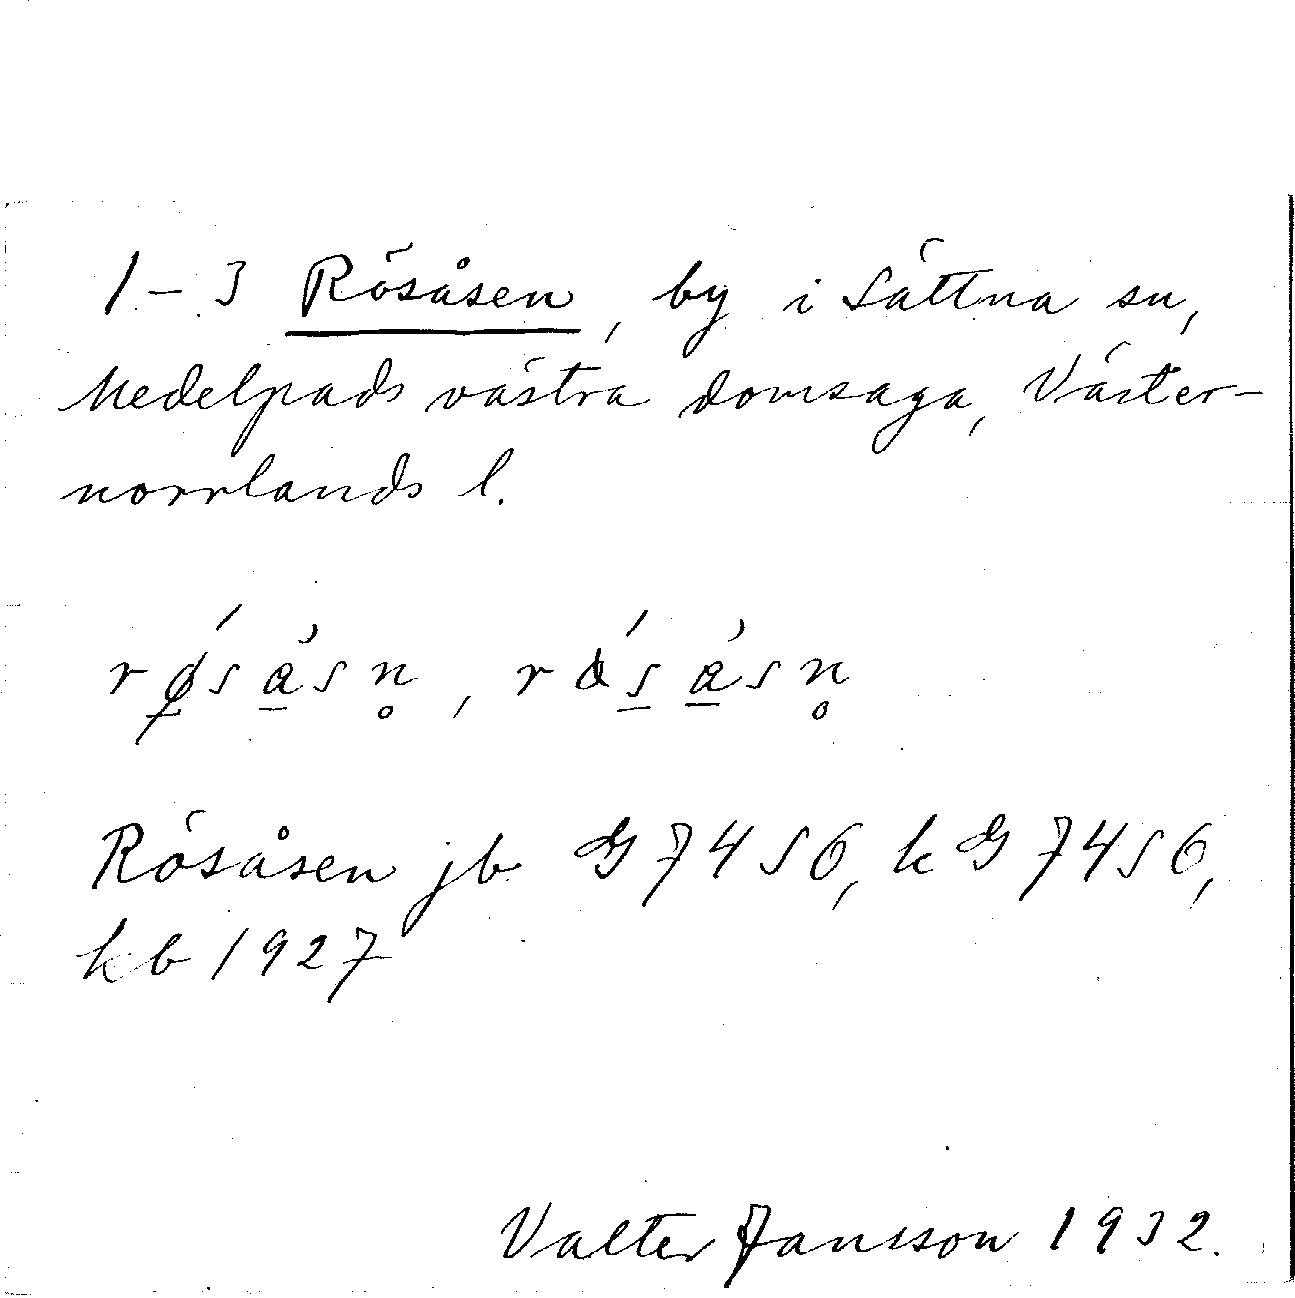 1-3 Rösåsen, by i Sättna sn,
Medelpads västra domsaga, Väster-
norrlands l.
Rösåsen jb G 7456, k G 7456,
kb 1927
Valter Jansson 1932.